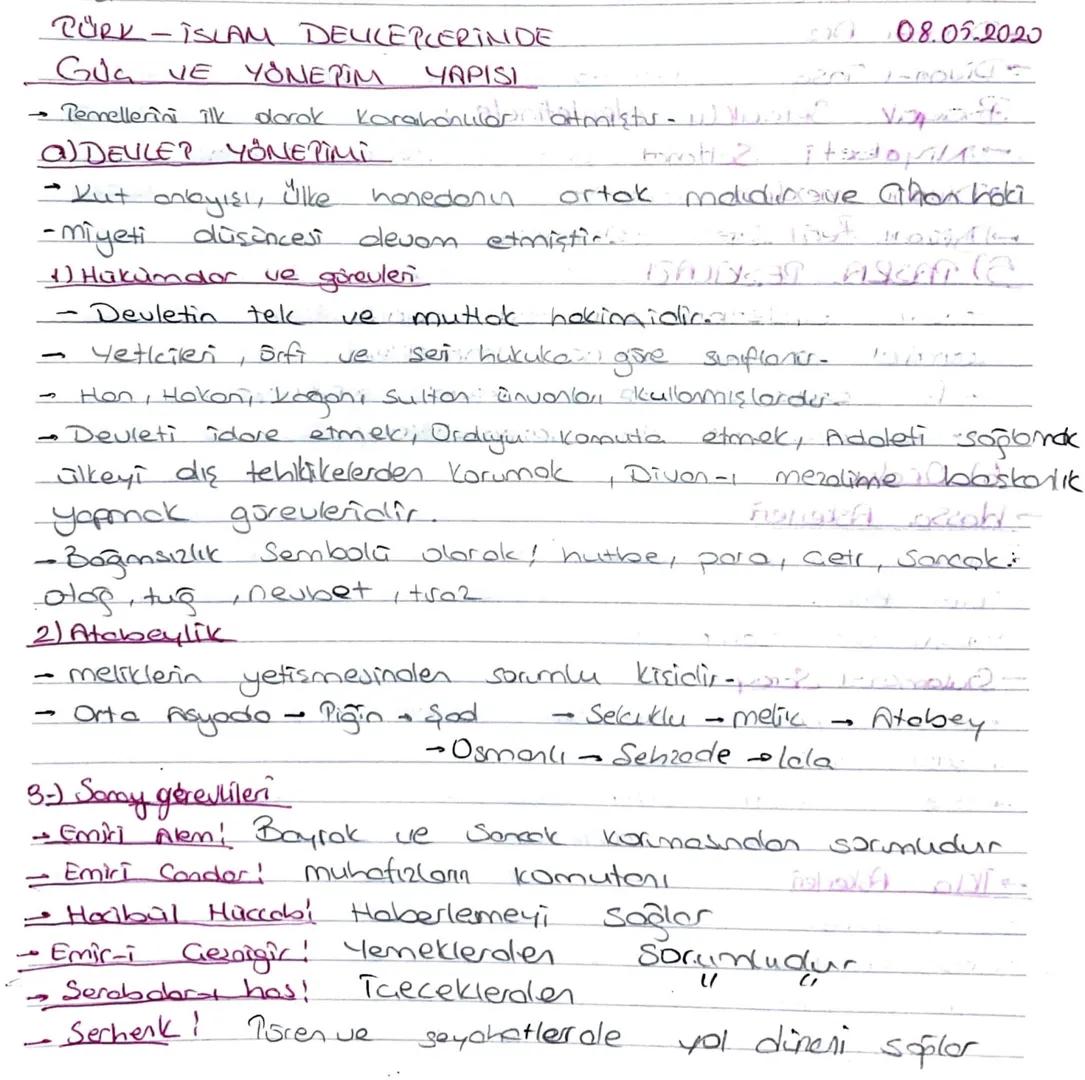 TÜRK-İSLAM DEVLETLERİNDE 08.05.2020
GÜÇ VE YÖNETİM YAPISI
→ Temellerini ilk olarak Karahanlılar atmıştır.
a) DEVLET YÖNETİMİ
→ Kut anlayışı, Ülke hanedanın ortak malıdır ve Cihan haki
-miyeti düşüncesi devam etmiştir.
1) Hükümdar ve görevleri
- Devletin tek ve mutlak hakimidir.
→ Yetkileri, örfi ve seri hukuka göre sınıflanır.
→ Han, Hakan, kağan, sultan ünvanları kullanmışlardır.
→ Devleti idare etmek, Orduyu komuta etmek, Adaleti sağlamak
ülkeyi dış tehlikelerden korumak, Divan-ı mezalime başkanlık
yapmak görevleridir.
- Bağımsızlık Sembolü olarak! hutbe, para, çetr, sancak
otağ, tuğ, nevbet, tıraz
2) Atabeylik
→ meliklerin yetişmesinden sorumlu kişidir.
→ Orta Asyada → Tigin → Şad → Selçuklu → melik → Atabey
→ Osmanlı → Sehzade → lala
3-) Saray görevlileri
→ Emiri Alem! Bayrak ve Sancak korumasından sorumludur
→ Emiri Candar! muhafızların komutanı
→ Hacibül Hüccab! Haberlemeyi sağlar
→ Emir-i Çeşnigir! Yemeklerden Sorumludur
→ Serabdar-ı has! İçeceklerden " "
→ Serhenk! Tören ve seyahatlerde yol düzeni sağlar